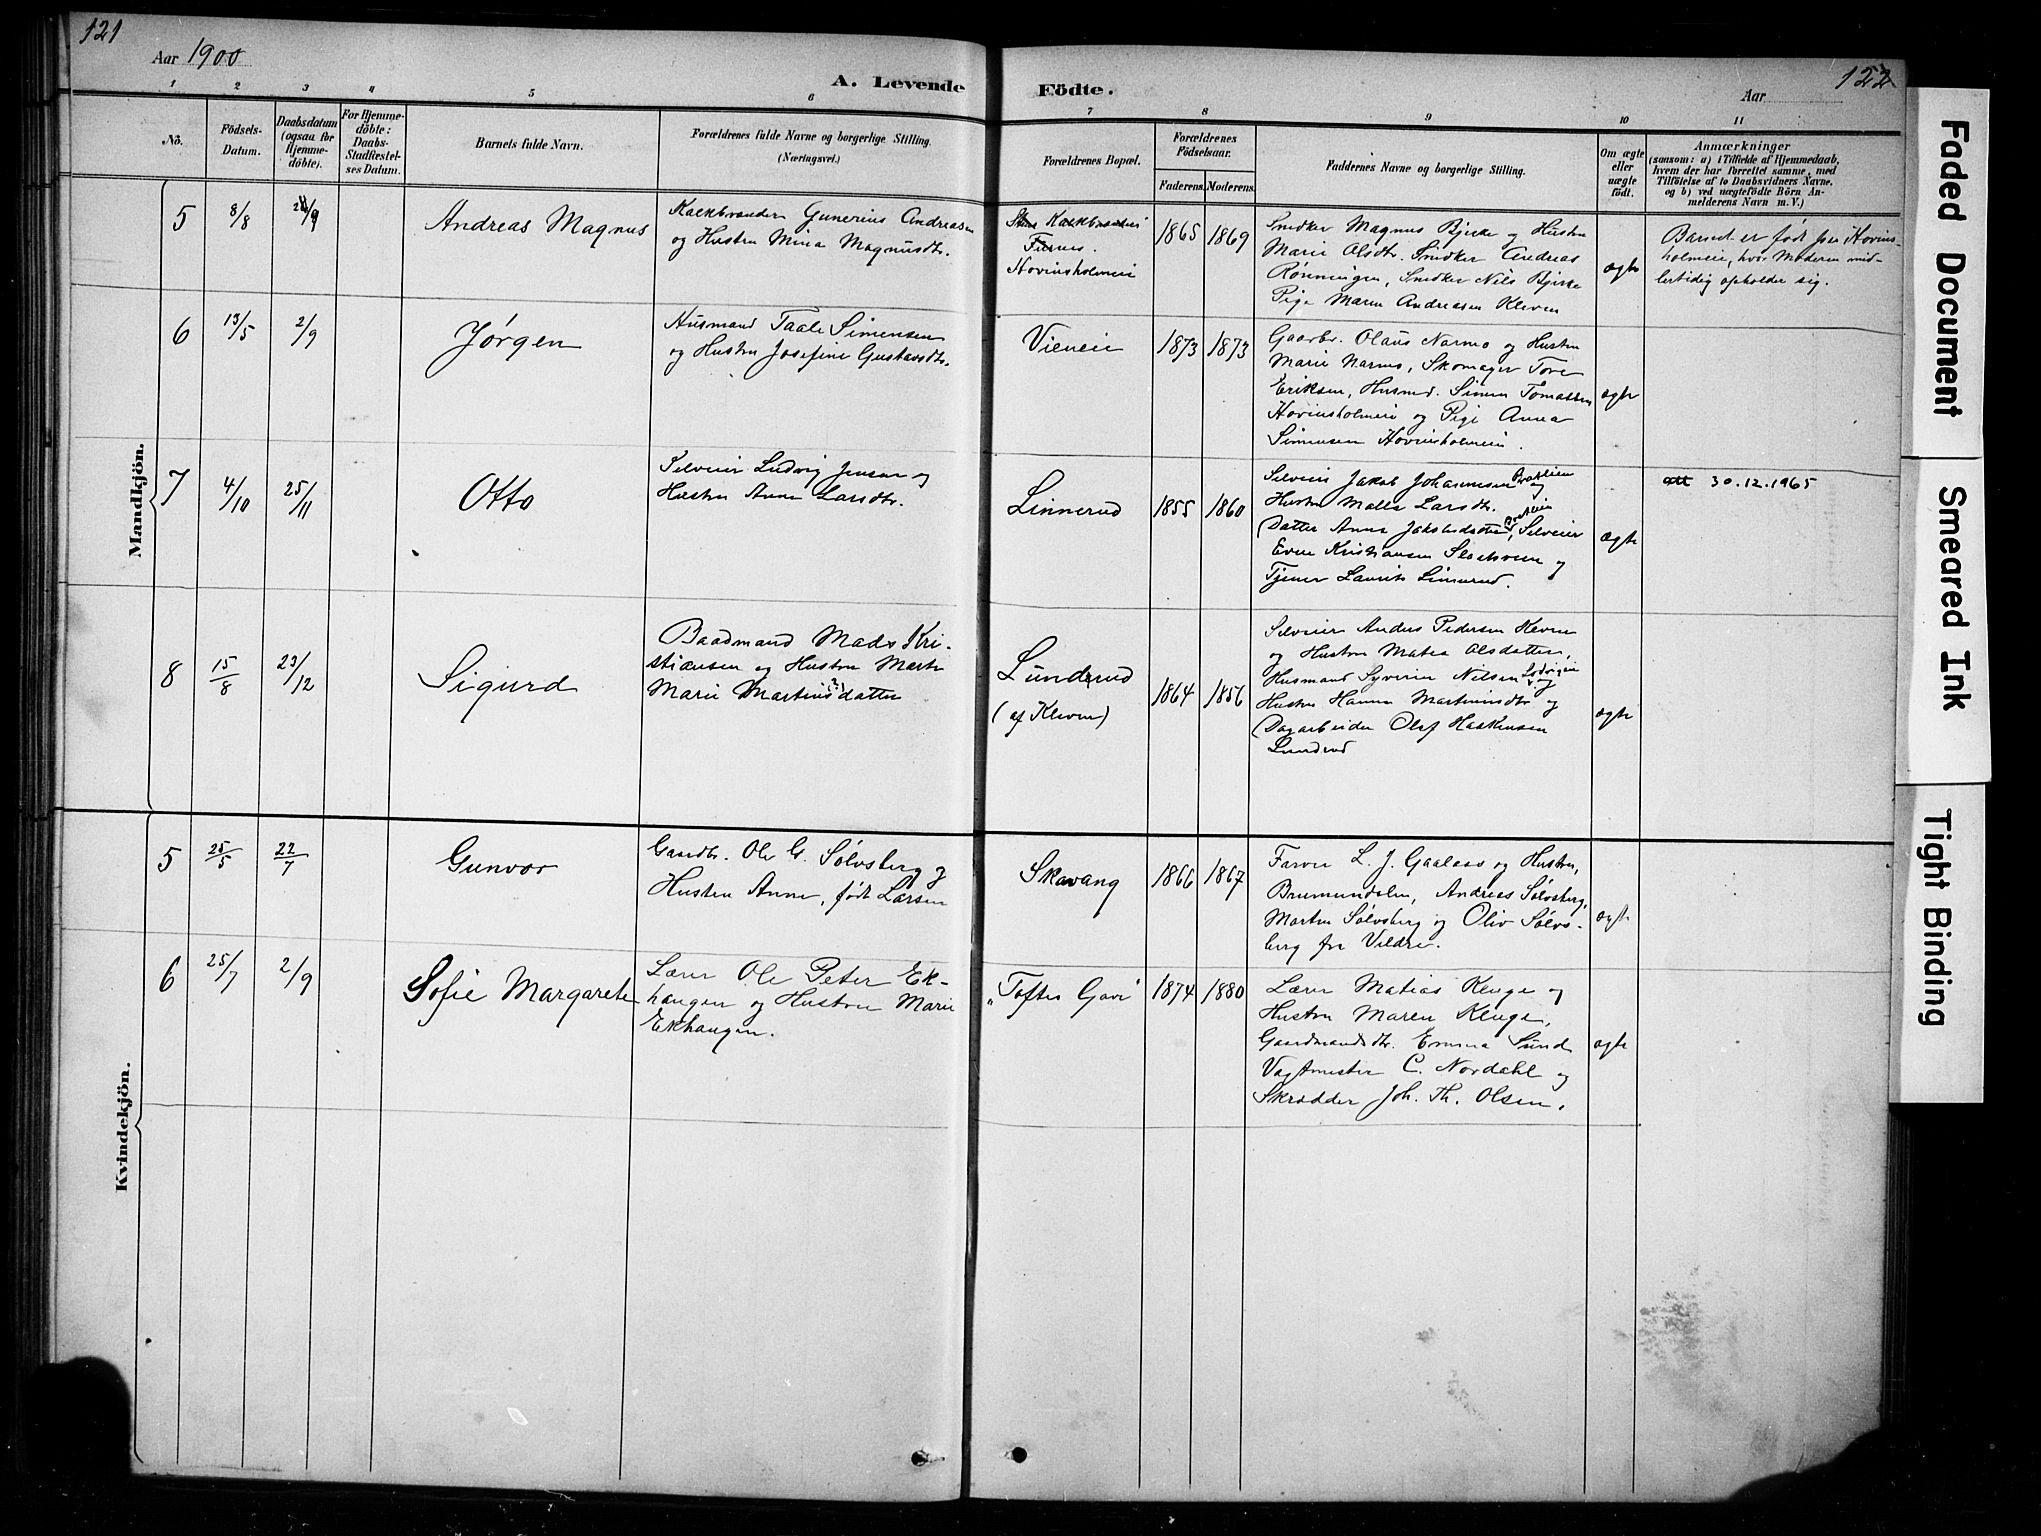 121
Aar 1900
A. Levende Födte.
122
Aar
1 2 3 4 5 6 7 8 9 10 11
No.
Födsels-
Datum.
Daabsdatum
(ogsaa for
Hjemme-
döbte).
For Hjemme-
döbte:
Daabs-
Stadfæstel-
ses Datum.
Barnets fulde Navn.
Forældrenes fulde Navne og borgerlige Stilling.
(Næringsvei.)
Forældrenes Bopæl.
Forældrenes
Födselsaar.
Faderens. Moderens.
Faddernes Navne og borgerlige Stilling.
Om ægte
eller
uægte
født.
Anmærkninger
(saasom: a) i Tilfælde af Hjemmedaab,
hvem der har forrettet samme, med
Tilföielse af to Daabsvidners Navne,
og b) ved uægtefödte Börn An-
melderens Navn m. V.)
Mandkjön.
5
8/8
Andreas Magnus
Kalkbrænder Gunerius Andreasen
og Hustru Mina Magnusdtr.
Furnes.
Hovinsholmeie
1865
1869
Snedker Magnus Bjerke og Hustru
Marie Olsdtr. Snedker Andreas
Rønningen, Snedker Nils Bjerke
Pige Maren Andreasen Kleven
ægte
Barnet er født paa Hovins-
holmeie, hvor Moderen mid-
lertidig opholder sig.
6
13/5
2/9
Jørgen
Husmand Taale Simensen
og Hustru Josefine Gustavsdtr.
Vieneie
1873
1873
Gaardbr. Olaus Narmo og Hustru
Marie Narmo, Skomager Tore
Eriksen, Husmd. Simen Tomassen
Hovinsholmeie og Pige Anna
Simensen Hovinsholmeie.
ægte
7
4/10
25/11
Otto
Selveier Ludvig Jensen og
Hustru Anne Larsdtr.
Linnerud
1855
1860
Selveier Jakob Johannessen Bratlien og
Hustru Malla Larsdtr.
Datter Anna Jakobsdatter Bratlien, Selveier
Even Kristiansen og
Tjener Laurits Linnerud.
ægte
30.12.1965
8
15/8
23/12
Sigurd
Baadmand Mads Kri-
stiansen og Hustru Marte
Marie Martinusdatter
Lunderud
(af Kleven)
1864
1856
Selveier Anders Pedersen Kleven
og Hustru Matea Olsdatter,
Husmand Syverin Nilsen og
Hustru Hanna Martinusdtr og
Dagarbeider Olaf Haakensen
Lunderud
ægte
Kvindekjön.
5
25/5
22/7
Gunvor
Gaardbr. Ole G. Sølvsberg og
Hustru Anne, født Larsen
Skavang
1866
1867
Farver L. J. Gaalaas og Hustru,
Brumundalen, Andreas Sølvsberg,
Martin Sølvsberg og Oliv Sølvs-
berg fra Veldre.
ægte
6
25/7
2/9
Sofie Margarete
Lærer Ole Peter Ek-
haugen og Hustru Marie
Ekhaugen.
„Toftes Gave"
1874
1880
Lærer Matias Kenge og
Hustru Maren Kenge,
Gaardmandsdtr. Emma Sund
Vagtmester C. Nordahl og
Skrædder Joh. Th. Olsen.
ægte
Faded Document
Smeared Ink
Tight Binding